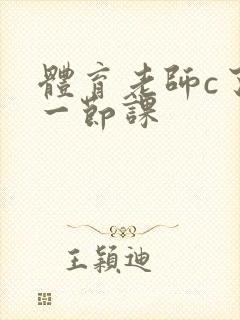 體育老師c了
一節課
王穎迪